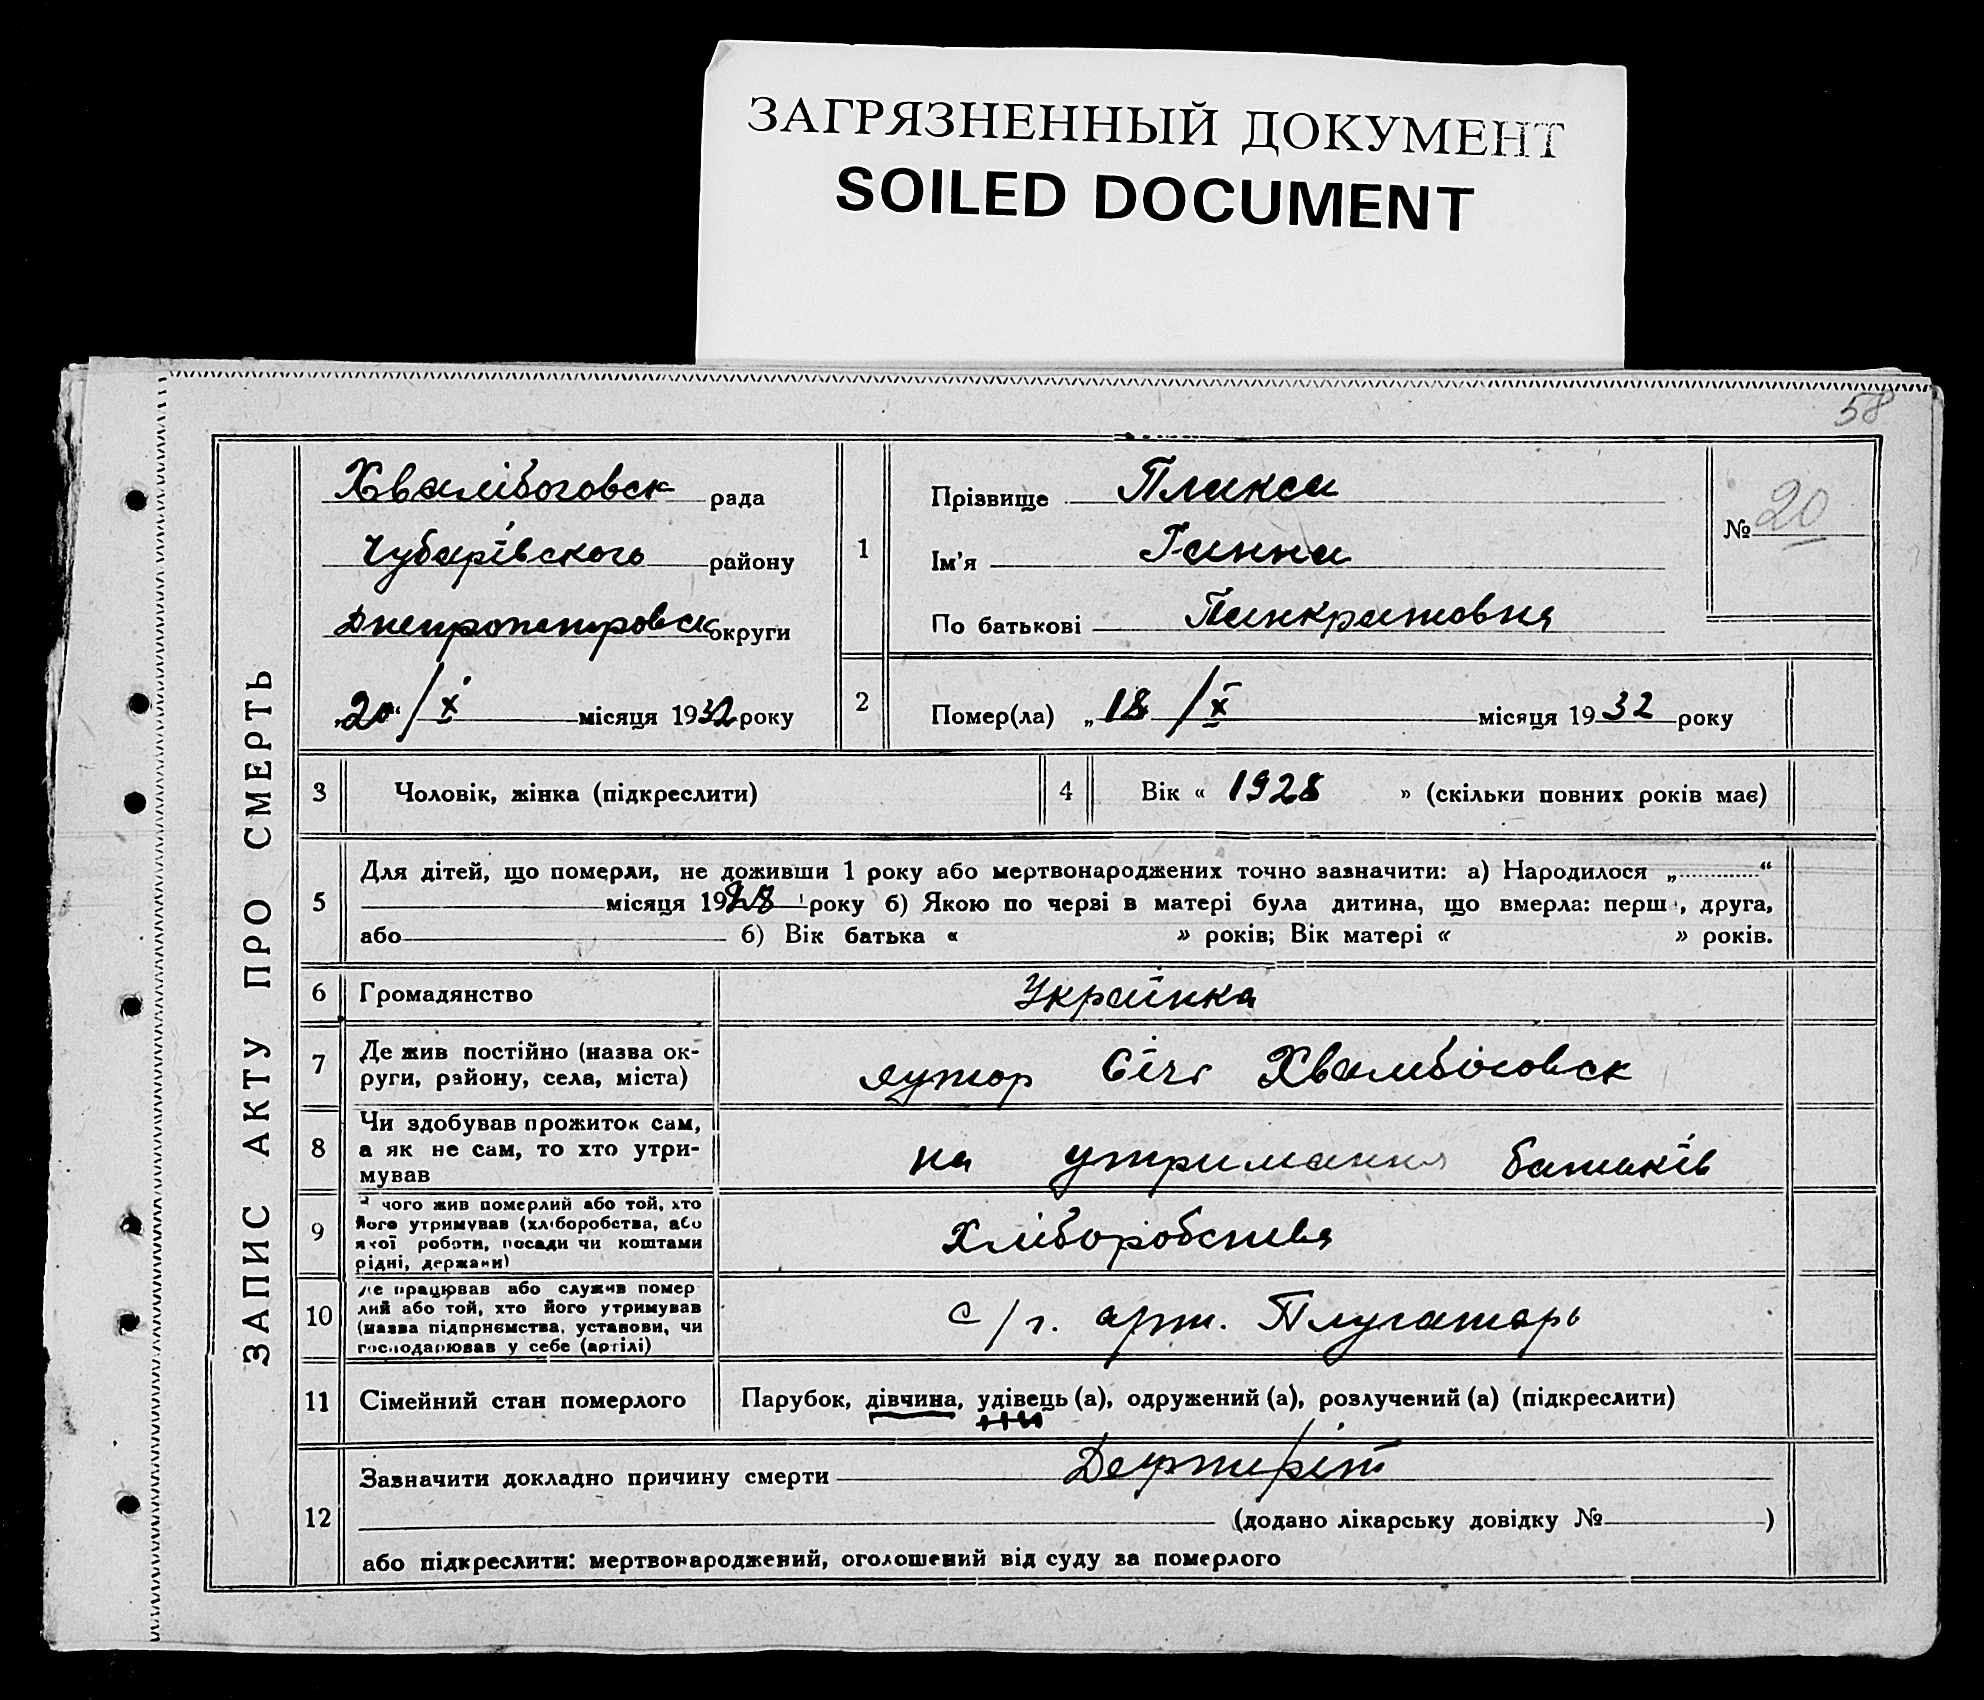 ЗАГРЯЗНЕННЫЙ ДОКУМЕНТ
SOILED DOCUMENT
58
ЗАПИС АКТУ ПРО СМЕРТЬ
Хвалібоговск рада
Чубарівського району
Днепропетровск округи
„20“/X місяця 1932 року
1
Прізвище Плакса
Ім'я Ганна
По батькові Панкратовна
№ 20
2
Помер(ла) „18 /X місяця 1932 року
3 Чоловік, жінка (підкреслити)
4 Вік « 1928 » (скільки повних років має)
5
Для дітей, що померли, не доживши 1 року або мертвонароджених точно зазначити: а) Народилося „ “
місяця 1928 року б) Якою по черзі в матері була дитина, що вмерла: перш , друга,
або б) Вік батька « » років; Вік матері « » років.
6 Громадянство Українка
7 Де жив постійно (назва ок-
руги, району, села, міста)
хутор Січ Хвалібоговск
8 Чи здобував прожиток сам,
а як не сам, то хто утри-
мував
на утримання батьків
9 чого жив померлий або той, хто
його утримував (хліборобства, або
якої роботи, посади чи коштами
рідні, держави)
Хліборобства
10 Де працював або служив помер
лий або той, хто його утримував
(назва підприємства, установи, чи
господарював у себе (артілі)
с/г. арт. Плугатарь
11 Сімейний стан померлого Парубок, дівчина, удівець (а), одружений (а), розлучений (а) (підкреслити)
12 Зазначити докладно причину смерти
(додано лікарську довідку № )
або підкреслити: мертвонароджений, оголошений від суду за померлого